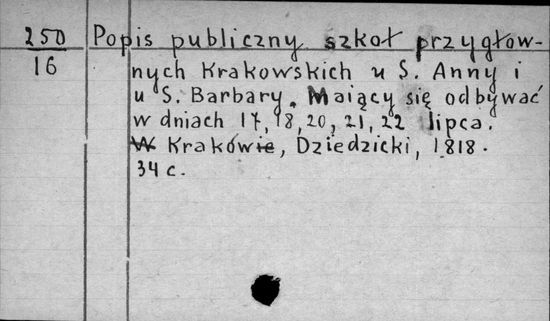 250 Popis publiczny szkoł przygłow-
16 nych Krakowskich u S. Anny i
u S. Barbary. Maiący się odbywać
w dniach 17, 18, 20, 21, 22 lipca.
W Krakowie, Dziedzicki, 1818.
34 c.